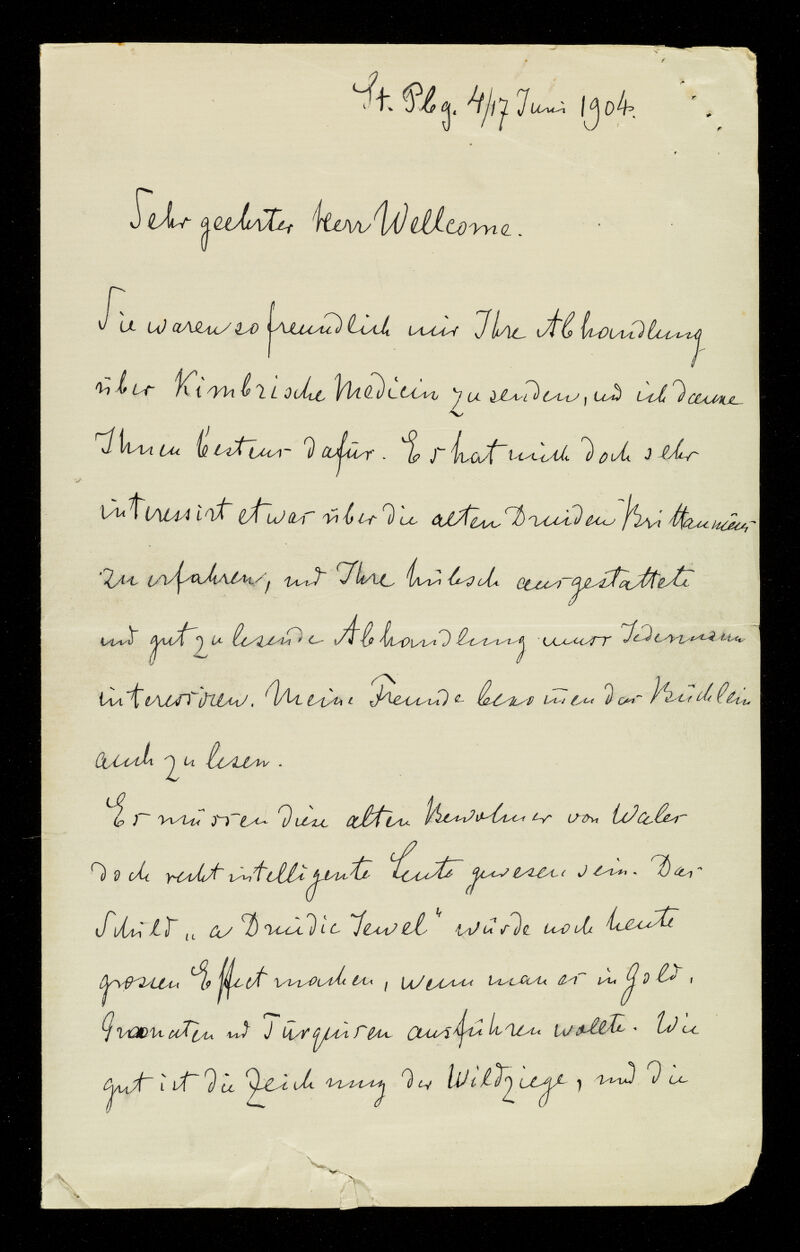 St. Pbg. 4/17 Juni 1904.
Sehr geehrter Herr Wellcome.
Sie waren so freundlich mir Ihre Abhandlung
über Kimbrische Medicin zu senden, und ich danke
Ihnen bestens dafür. Es hat mich doch sehr
interessirt etwas über die alten Druiden Brittanniens
zu erfahren, und Ihre hübsch ausgestattete
und gut zu lesende Abhandlung muss Jedermann
interessiren. Meine Freunde bekom̅en das Büchlein
auch zu lesen.
Es müssen diese alten Bewohner von Wales
doch recht intelligente Leute gewesen sein. Das
Schild „a Druidic Jewel" würde noch heute
grossen Effect machen, wenn man es in Gold,
Granaten und Türquisen ausführen wollte. Wie
gut ist die Zeichnung der Wildziege, und die